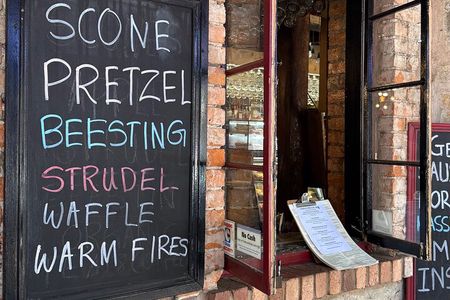 SCONE
PRETZEL
BEESTING
STRUDEL
WAFFLE
WARM FIRES
No Cash
GE
AU
OR
ASS
M
INS